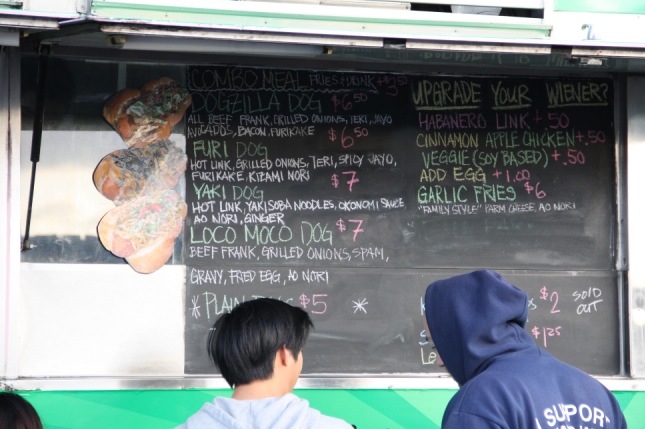 COMBO MEAL FRIES+DRINK +3.50
DOGZILLA DOG $6.50
ALL BEEF FRANK, GRILLED ONIONS, TERI, JAYO
AVOCADOS, BACON, FURIKAKE
FURI DOG $6.50
HOT LINK, GRILLED ONIONS, TERI, SPICY JAYO,
FURIKAKE, KIZAMI NORI
YAKI DOG $7
HOT LINK, YAKISOBA NOODLES, OKONOMI SAUCE
AO NORI, GINGER
LOCO MOCO DOG $7
BEEF FRANK, GRILLED ONIONS, SPAM,
GRAVY, FRIED EGG, AO NORI
* PLAIN $5 *
UPGRADE YOUR WIENER?
HABANERO LINK +.50
CINNAMON APPLE CHICKEN +.50
VEGGIE (SOY BASED) +.50
ADD EGG +1.00
GARLIC FRIES $6
"FAMILY STYLE" PARM CHEESE, AO NORI
$2 SOLD OUT
$1.25
Le
SUPPOR